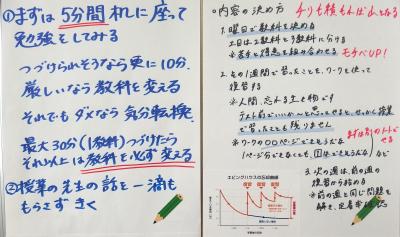 ①まずは5分間机に座って
勉強をしてみる
つづけられそうなら更に10分
厳しいなら教科を変える
それでもダメなら気分転換
最大30分(1教科)つづけたら
それ以上は教科を必ず変える
②授業の先生の話を一滴も
もらさずきく
○内容の決め方
チリも積もれば山となる
1. 曜日で教科を決める
土日は2教科と3教科に分ける
※苦手と得意を組み合わせる モチベUP!
2. その1週間で習ったことを、ワークを使って
復習する
※人間、忘れる生き物です
で習ったことも残りません
※ワークの○○ページでもよし
まずは別のノートでせる
3. 次の週は、前の週の
復習から始める
※前の週と同じ問題を
解き、定着率
エビングハウスの忘却曲線
復習 復習 復習